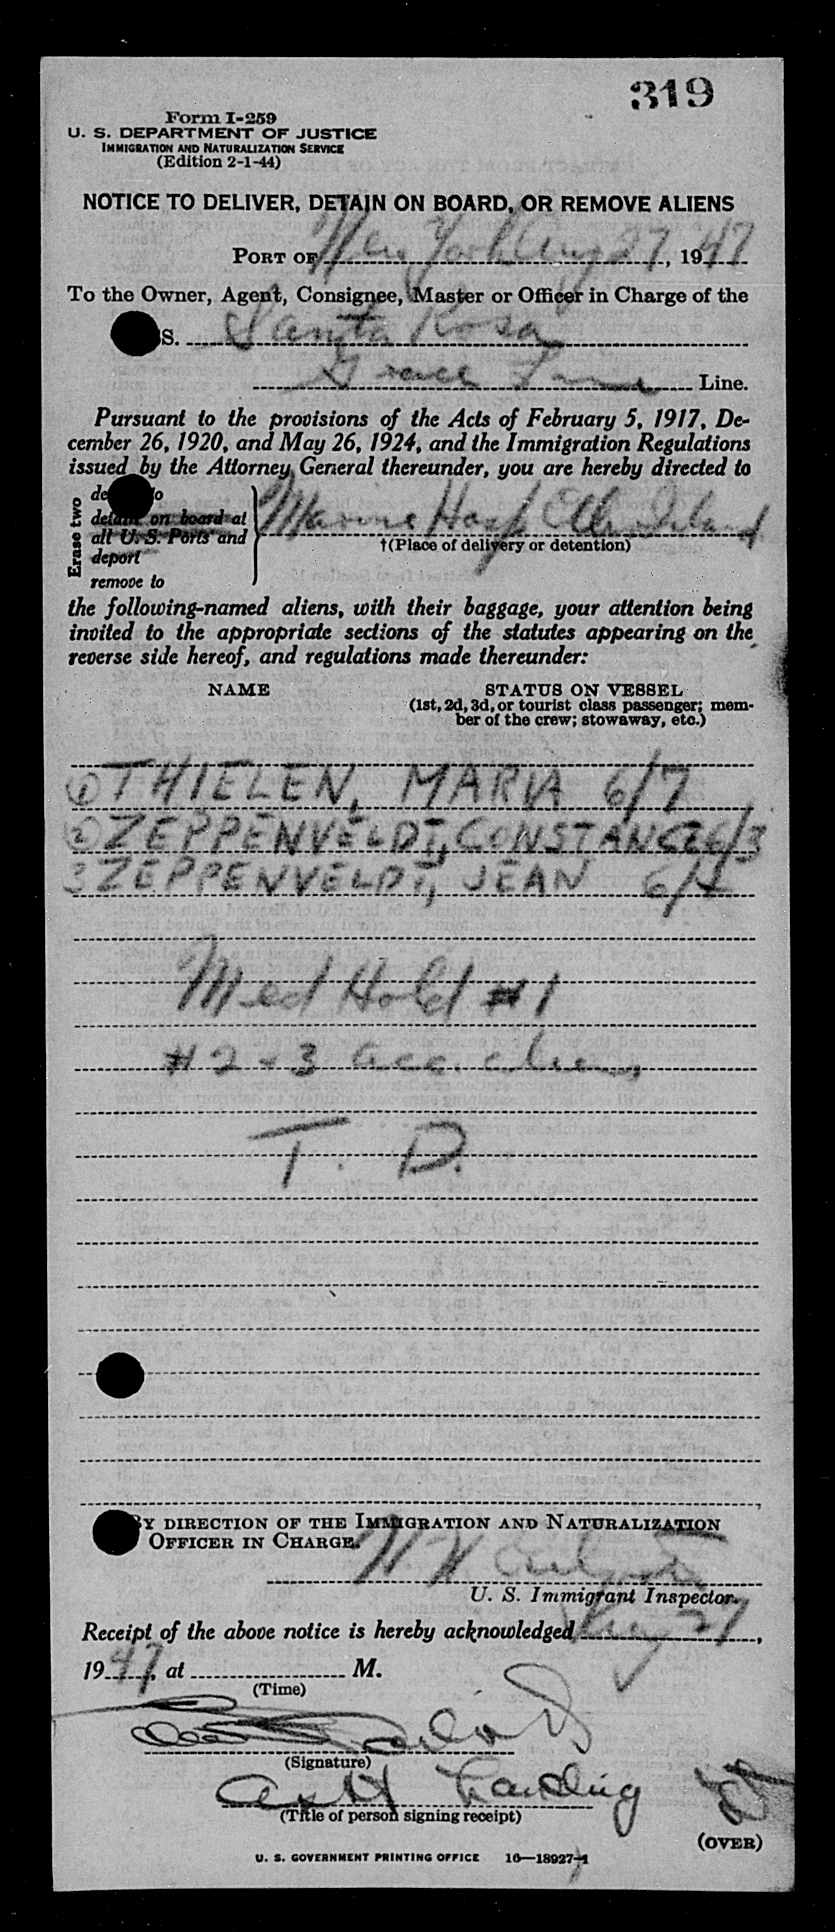 319
Form I-259
U. S. DEPARTMENT OF JUSTICE
IMMIGRATION AND NATURALIZATION SERVICE
(Edition 2-1-44)
NOTICE TO DELIVER, DETAIN ON BOARD, OR REMOVE ALIENS
PORT OF New York Aug 27, 1947
To the Owner, Agent, Consignee, Master or Officer in Charge of the
S. Santa Rosa
Grace Line Line.
Pursuant to the provisions of the Acts of February 5, 1917, De-
cember 26, 1920, and May 26, 1924, and the Immigration Regulations
issued by the Attorney General thereunder, you are hereby directed to
Erase two
detain on board at
all U. S. Ports and
deport
remove to
Marine Hosp Ellis Island
†(Place of delivery or detention)
the following-named aliens, with their baggage, your attention being
invited to the appropriate sections of the statutes appearing on the
reverse side hereof, and regulations made thereunder:
NAME STATUS ON VESSEL
(1st, 2d, 3d, or tourist class passenger; mem-
ber of the crew; stowaway, etc.)
1 THIELEN, MARIA 6/7
2 ZEPPENVELDT, CONSTANCE 6/3
3 ZEPPENVELDT, JEAN 6/4
Med Hold #1
#2 - 3 acc. alien
T. D.
BY DIRECTION OF THE IMMIGRATION AND NATURALIZATION
OFFICER IN CHARGE.
U. S. Immigrant Inspector.
Receipt of the above notice is hereby acknowledged Aug 27,
1947, at M.
(Time)
(Signature)
(Title of person signing receipt)
(OVER)
U. S. GOVERNMENT PRINTING OFFICE 16—18927-1